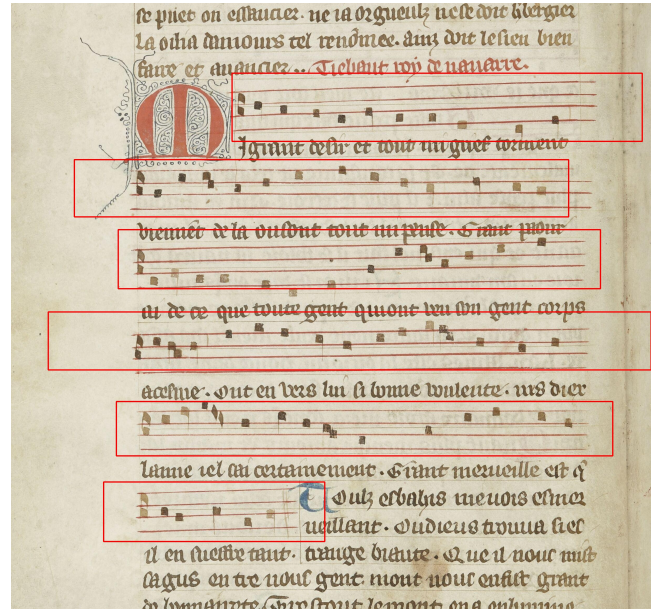 se priet on essaucier. ne ia orgueulz ne se doit hbergier
La ou ha damours tel renomee. ainz doit le sieu bien
faire et auancier.. Tiebaut roy de nauarre.
M
I grant desir et tout mi gref torment
viennent de la ou sont tout mi pense. Grant paour
ai de ce que toute gent qui ont veu son gent corps
acesme. Ont en vers lui si bonne voulente. nis diex
lainme iel sai certainement. Grant merueille est q
Touz esbahis me vois esmer
ueillant. Ou diex trouua si es
il en sueffre tant. trange biaute. Que il nous mist
ca gus en tre nous gent mont nous enfist grant